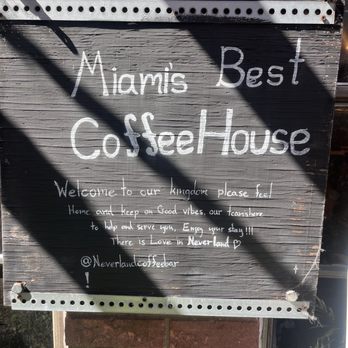 Miami's Best
Coffee House
Welcome to our kingdom please feel
Home and keep on Good vibes, our team is here
to help and serve you, Enjoy your stay!!!
There is Love in Neverland ♡
@Neverlandcoffeebar
!